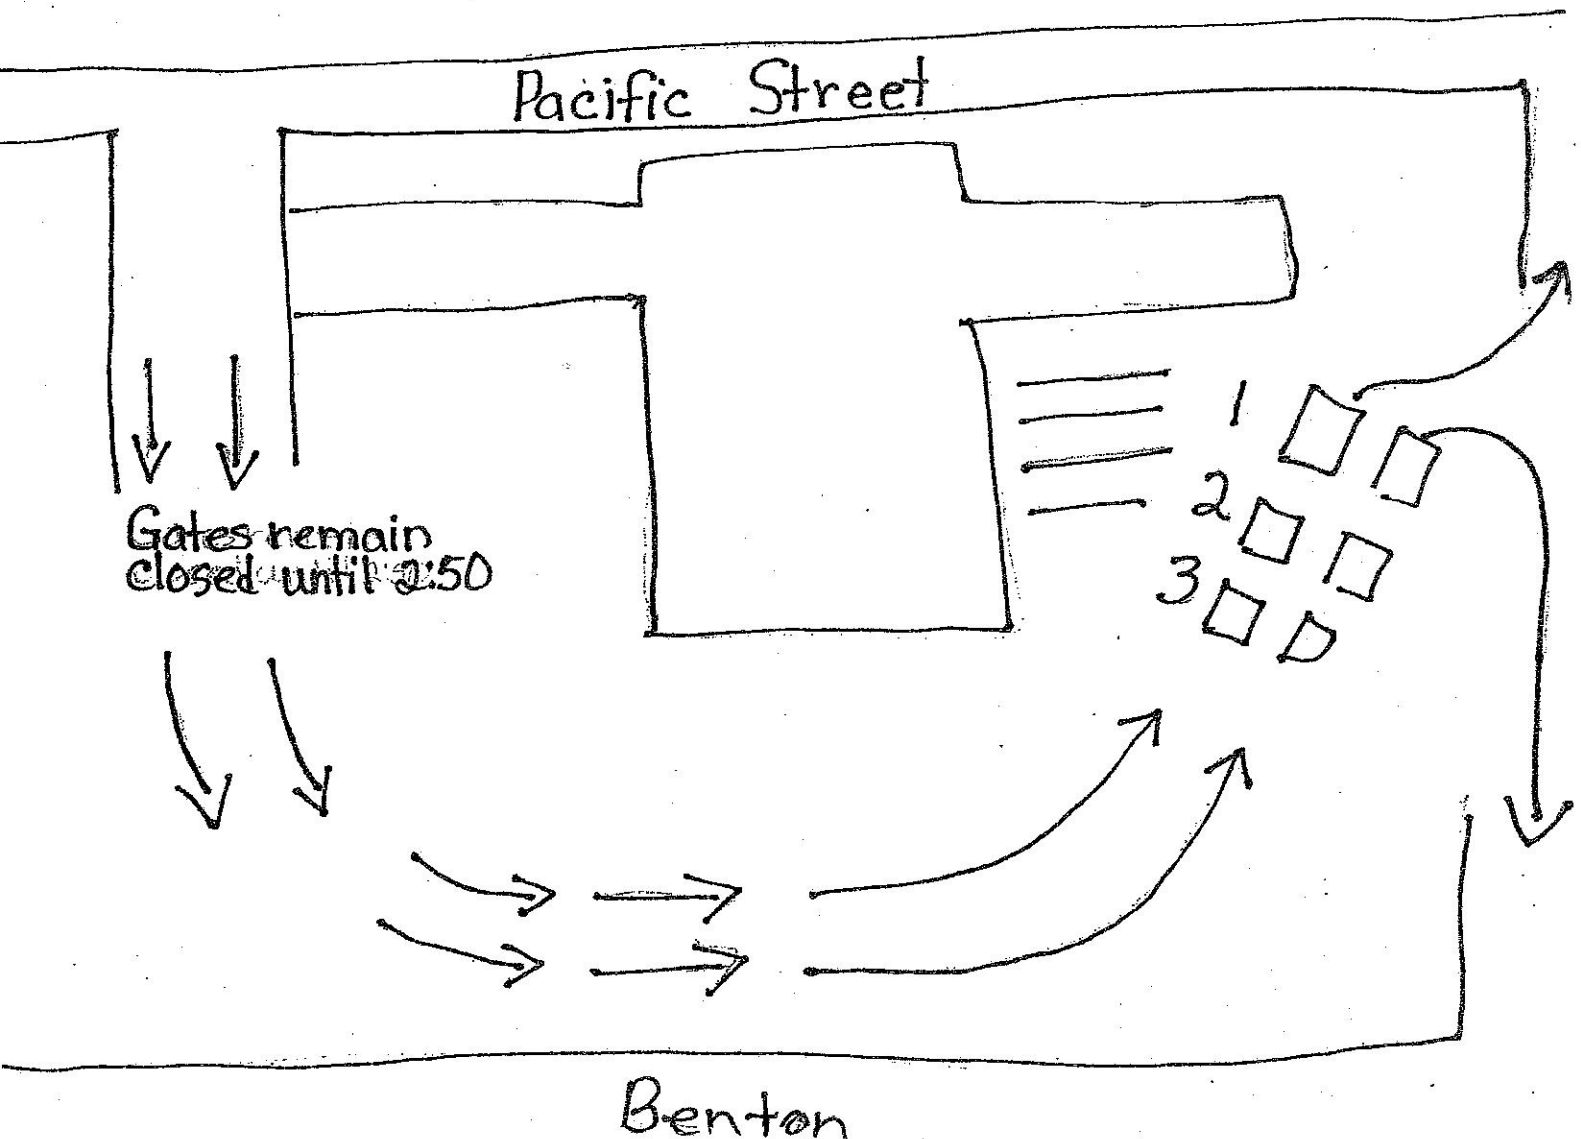 Pacific Street
1
2
3
Gates remain
closed until 2:50
Benton